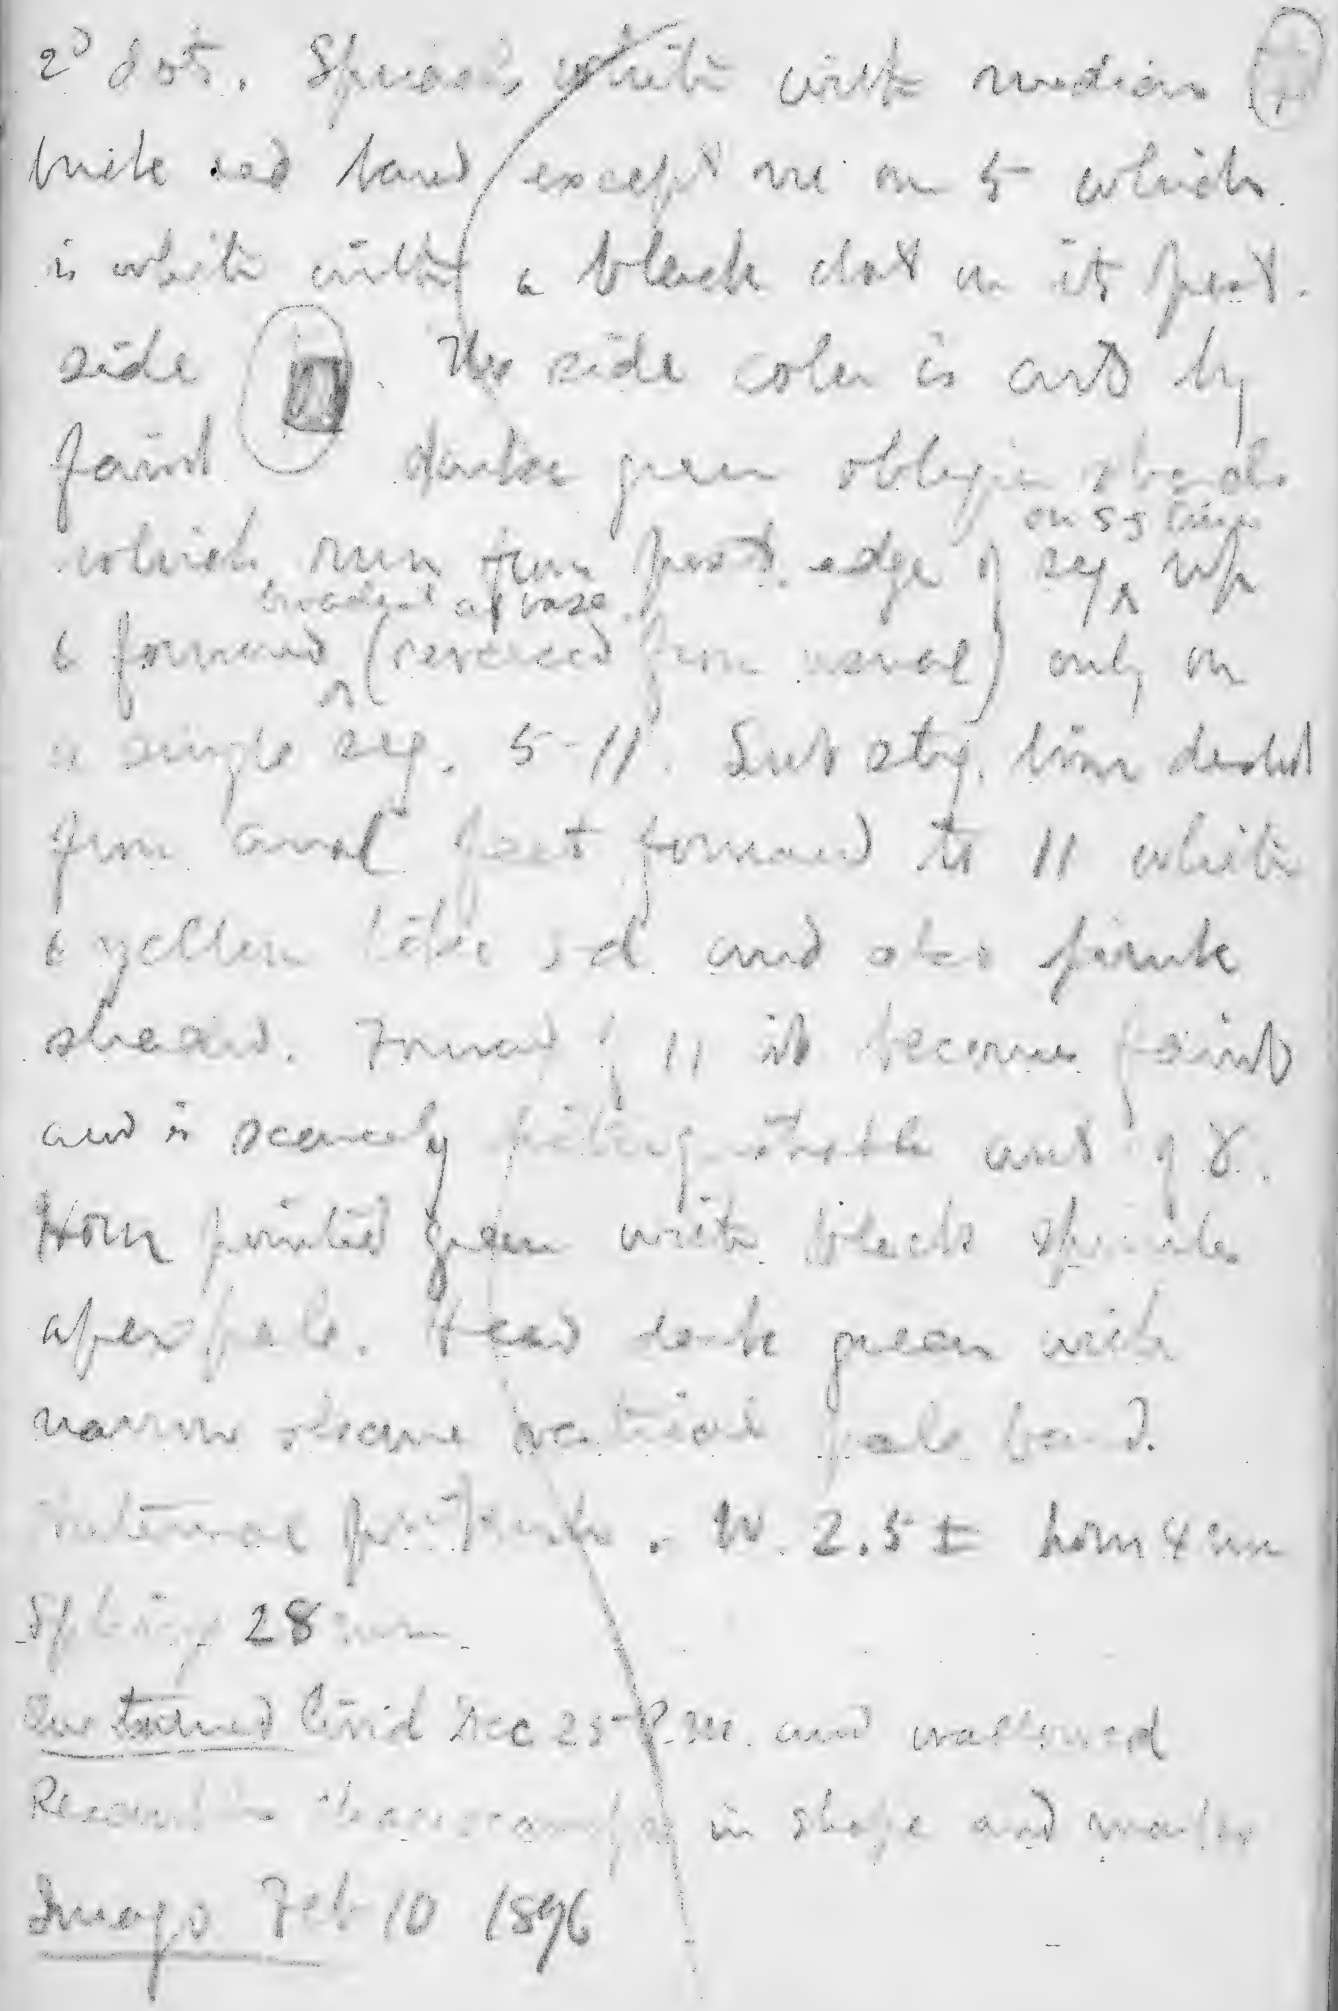 2d dots. Spiracles white with median
brick red band except one on 5 which
is white with a black dot on its post.
side. The side color is cut by
faint darker green oblique shades
on 5 5 lines
which run from post. edge of seg up
broadest at base
& forward (reversed from usual) only on
a single seg. 5-11. Sub stig. line distinct
from anal feet forward to 11 white
& yellow and also pink
shaded. Forward of 11 it becomes faint
and is scarcely distinguishable ant of 8.
Horn pointed green with black spinules
apex pale. Head dark green with
narrow obscure vertical pale band.
internal . W. 2.5 ± horn 4 mm
28 mm
One turned livid Dec 25 P.M. and wandered
Resembles in shape and marks
Imago Feb 10 1896